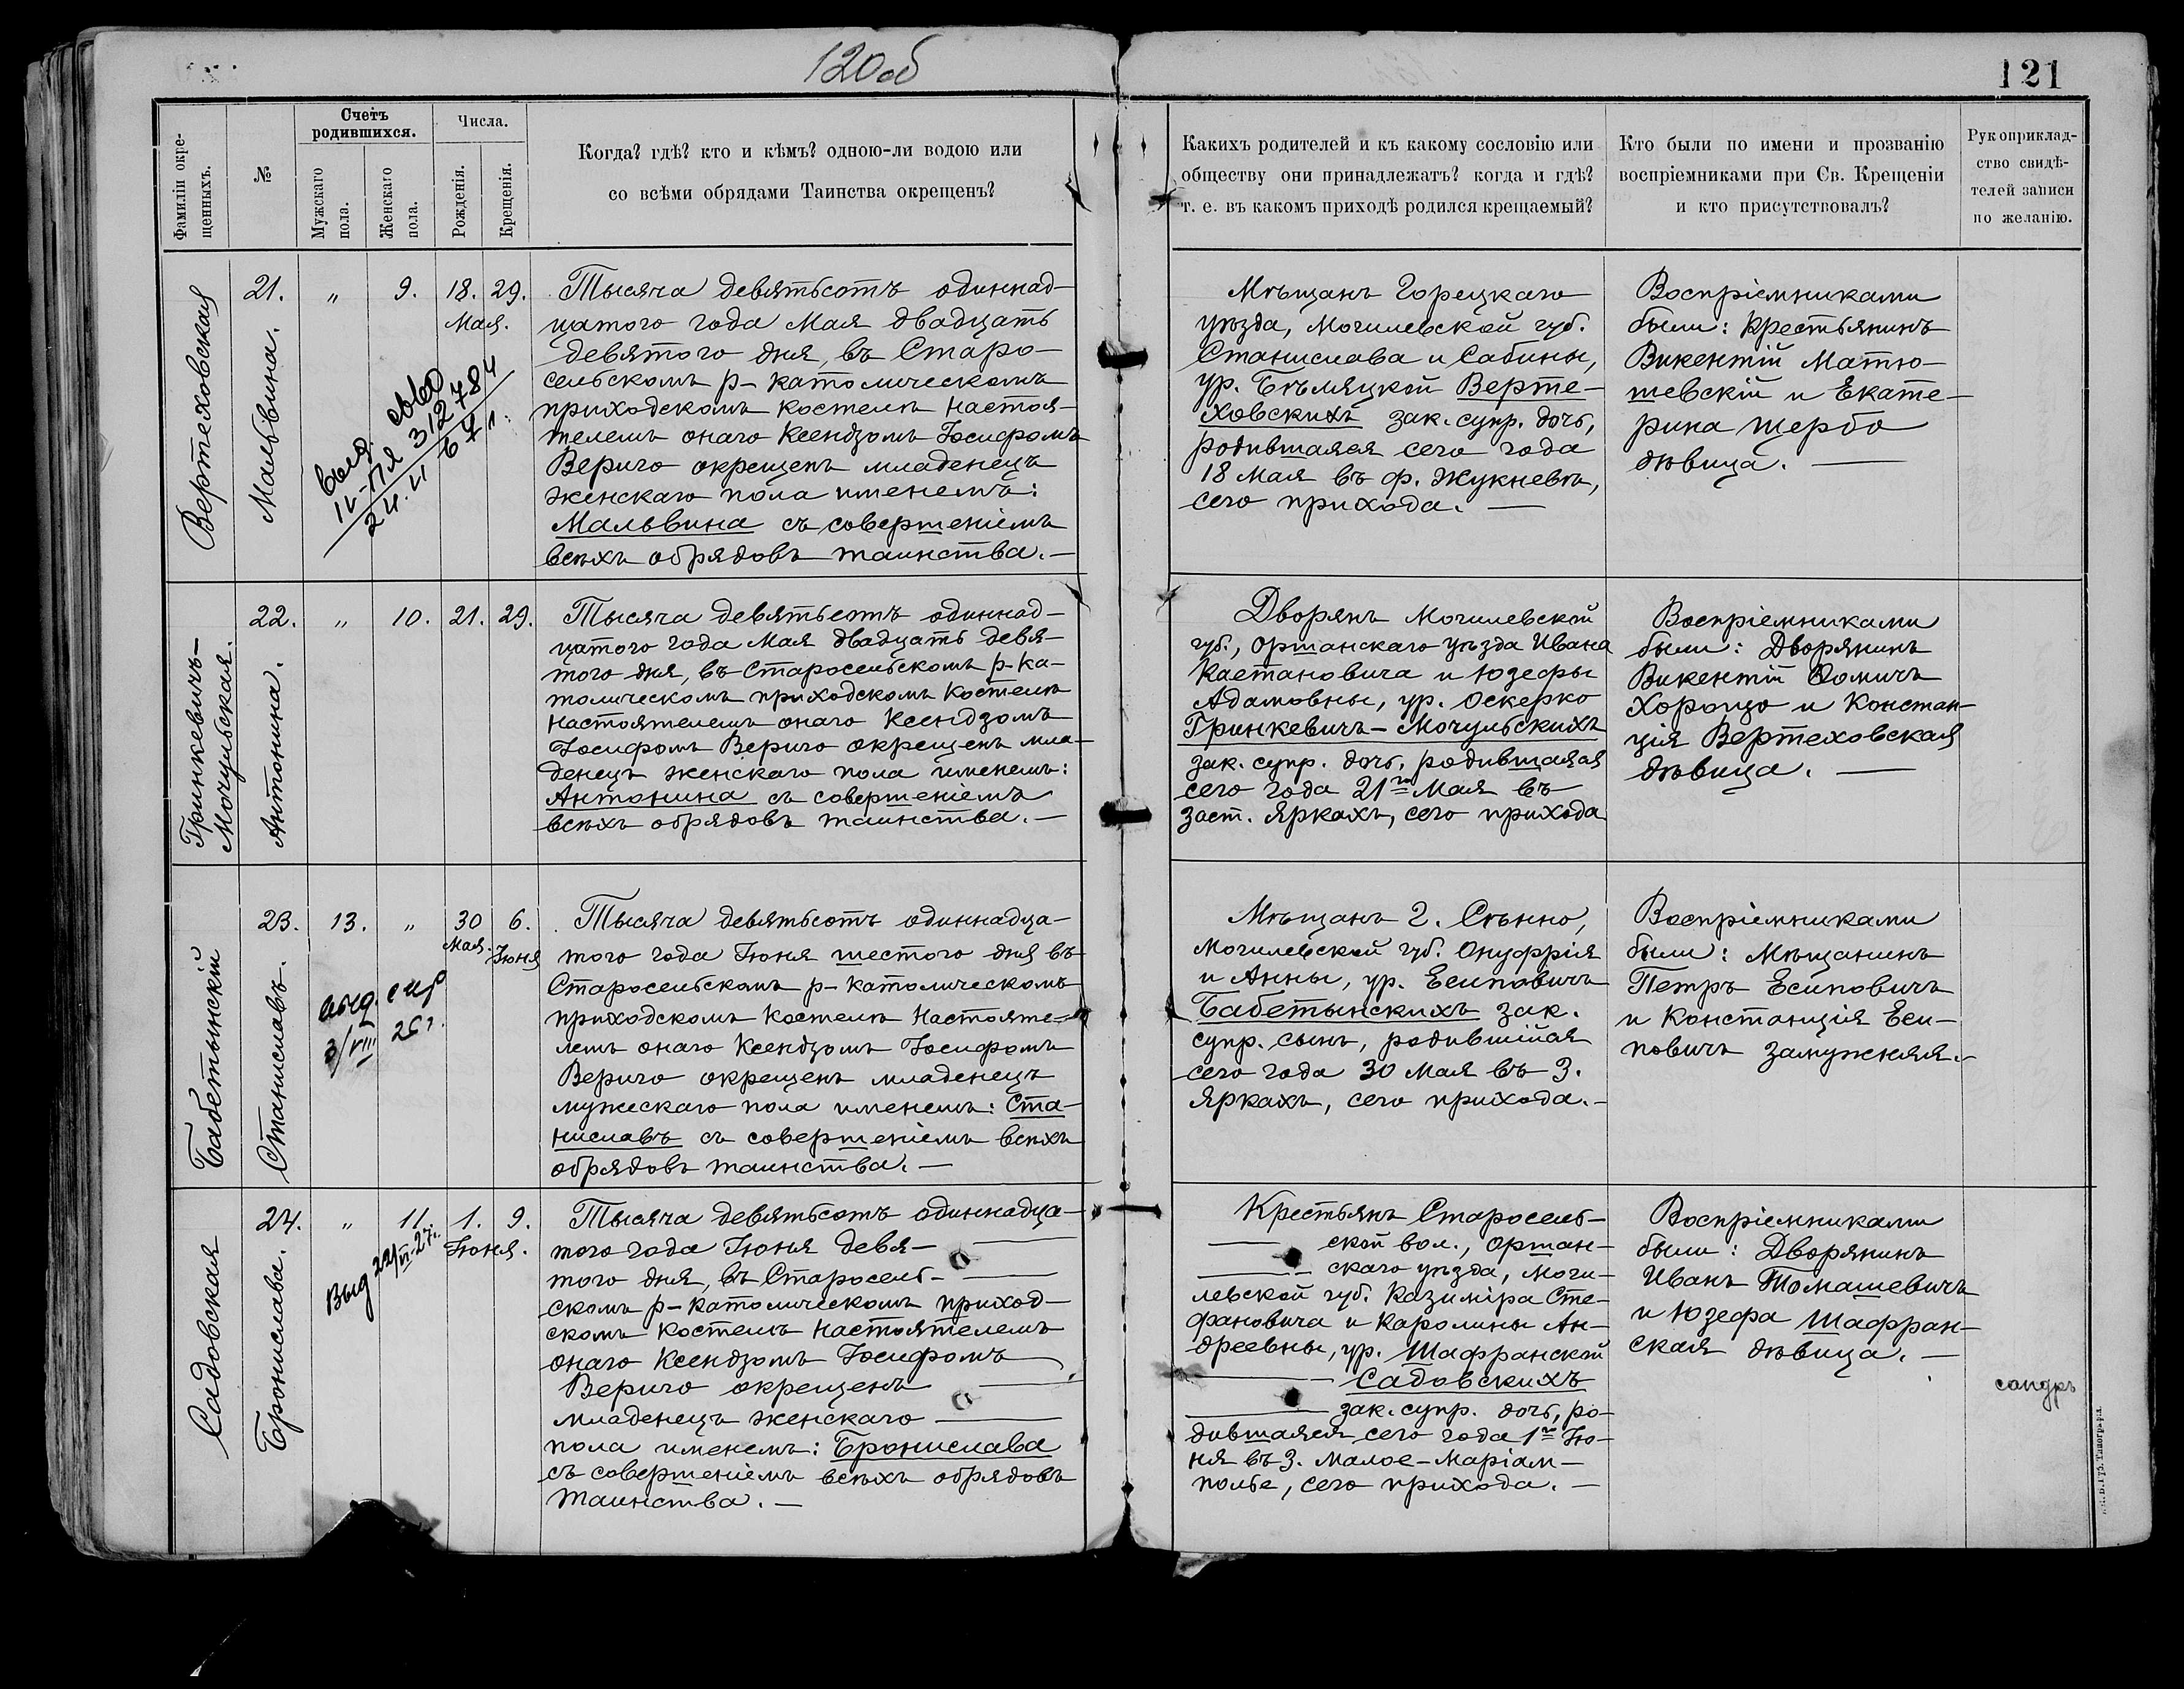 120об
121
Фамиліи окре-
щенныхъ.
№
Счетъ
родившихся.
Мужскаго
пола.
Женскаго
пола.
Числа.
Рожденія.
Крещенія.
Когда? гдѣ? кто и кѣмъ? одною-ли водою или
со всѣми обрядами Таинства окрещенъ?
Какихъ родителей и къ какому сословію или
обществу они принадлежатъ? когда и гдѣ?
т. е. въ какомъ приходѣ родился крещаемый?
Кто были по имени и прозванію
воспріемниками при Св. Крещеніи
и кто присутствовалъ?
Рукоприклад-
ство свидѣ-
телей записи
по желанію.
Вертеховская
21.
Мальвина.
„
9.
18. 29.
Мая.
выд.
IV-ПЯ 312784
24.VI 67 г.
Тысяча девятьсотъ одиннад-
цатого года Мая двадцать
девятого дня, въ Старо-
сельскомъ р-католическомъ
приходскомъ костелѣ Настоя-
телемъ онаго Ксендзомъ Іосифомъ
Вериго окрещенъ младенецъ
женскаго пола именемъ:
Мальвина съ совершеніемъ
всѣхъ обрядовъ таинства.—
Мѣщанъ Горецкаго
уѣзда, Могилевской губ.
Станислава и Сабины,
ур. Бѣляцкой Верте-
ховскихъ зак. супр. дочь,
родившаяся сего года
18 Мая въ ф. Жукневѣ,
сего прихода. —
Воспріемниками
были: Крестьянинъ
Викентій Матю-
шевскій и Екате-
рина Щербо
дѣвица. —
Гринкевичъ-
Мочульская.
22.
Антонина.
„
10.
21. 29.
Тысяча девятьсотъ одиннад-
цатого года Мая двадцать девя-
того дня, въ Старосельскомъ р-ка-
толическомъ приходскомъ костелѣ
Настоятелемъ онаго Ксендзомъ
Іосифомъ Вериго окрещенъ мла-
денецъ женскаго пола именемъ:
Антонина съ совершеніемъ
всѣхъ обрядовъ таинства.—
Дворянъ Могилевской
губ., Оршанскаго уѣзда Ивана
Каетановича и Юзефы
Адамовны, ур. Оскерко
Гринкевичъ-Мочульскихъ
зак. супр. дочь, родившаяся
сего года 21го Мая въ
заст. Яркахъ, сего прихода
Воспріемниками
были: Дворянинъ
Викентій Ѳомичъ
Хороцо и Констан-
ція Вертеховская
дѣвица. —
Бабетынскій
23.
Станиславъ.
13.
„
30
Мая.
6.
Іюня
выд
3/VIII 26г.
Тысяча девятьсотъ одиннадца-
того года Іюня шестого дня въ
Старосельскомъ р-католическомъ
приходскомъ костелѣ Настояте-
лемъ онаго Ксендзомъ Іосифомъ
Вериго окрещенъ младенецъ
мужескаго пола именемъ: Ста-
ниславъ съ совершеніемъ всѣхъ
обрядовъ таинства.—
Мѣщанъ г. Сѣнно,
Могилевской губ. Онуфрія
и Анны, ур. Есиповичъ
Бабетынскихъ зак.
супр. сынъ, родившійся
сего года 30 Мая въ З.
Яркахъ, сего прихода.—
Воспріемниками
были: Мѣщанинъ
Петръ Есиповичъ
и Констанція Еси-
повичъ замужняя.—
Садовская
24.
Бронислава.
„
11.
1. 9.
Іюня.
Выд 22/VI.27г.
Тысяча девятьсотъ одиннадца-
того года Іюня девя-
того дня, въ Старосель-
скомъ р-католическомъ приход-
скомъ костелѣ Настоятелемъ
онаго Ксендзомъ Іосифомъ
Вериго окрещенъ
младенецъ женскаго
пола именемъ: Бронислава
съ совершеніемъ всѣхъ обрядовъ
таинства.—
Крестьянъ Старосель-
ской вол., Оршан-
скаго уѣзда, Моги-
левской губ. Казиміра Сте-
фановича и Каролины Ан-
дреевны, ур. Шафранской
Садовскихъ
зак. супр. дочь, ро-
дившаяся сего года 1го Ію-
ня въ З. Малое-Маріам-
полье, сего прихода. —
Воспріемниками
были: Дворянинъ
Иванъ Томашевичъ
и Юзефа Шафран-
ская дѣвица. —
сандръ
Типографія.